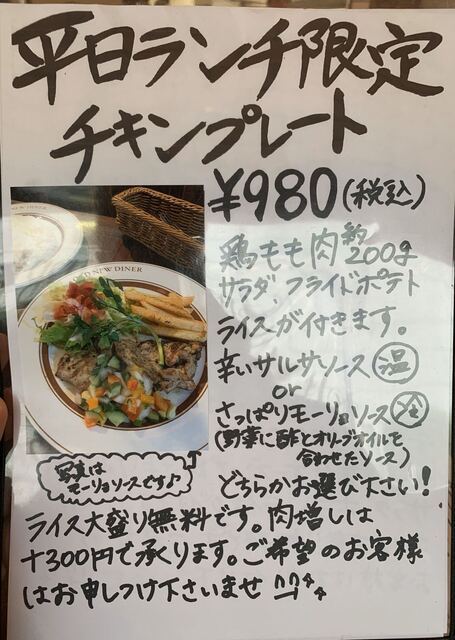 平日ランチ限定
チキンプレート
¥980(税込)
鶏もも肉約200g
サラダ、フライドポテト
ライスが付きます。
辛いサルサソース温
or
さっぱりモーリョソース冷
(野菜に酢とオリーブオイルで
合わせたソース)
どちらかお選び下さい!
OLD NEW DINER
写真は
モーリョソースです♪
ライス大盛り無料です。肉増しは
+300円で承ります。ご希望のお客様
はお申しつけ下さいませ